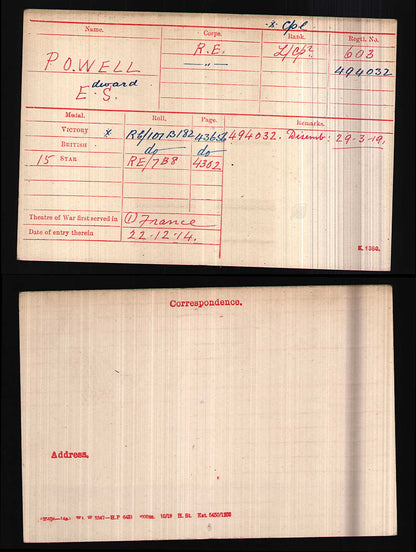 x Cpl.
Name. Corps. Rank. Regtl. No.
POWELL R.E. L/Cpl 603
—„— 494032
Edward S.
Medal. Roll. Page. Remarks.
VICTORY x RE/101B182 43656 494032. Disemb: 29-3-19.
BRITISH do do
15 STAR RE/7B8 4362
Theatre of War first served in (1) France
Date of entry therein 22-12-14.
K. 1380.
Correspondence.
Address.